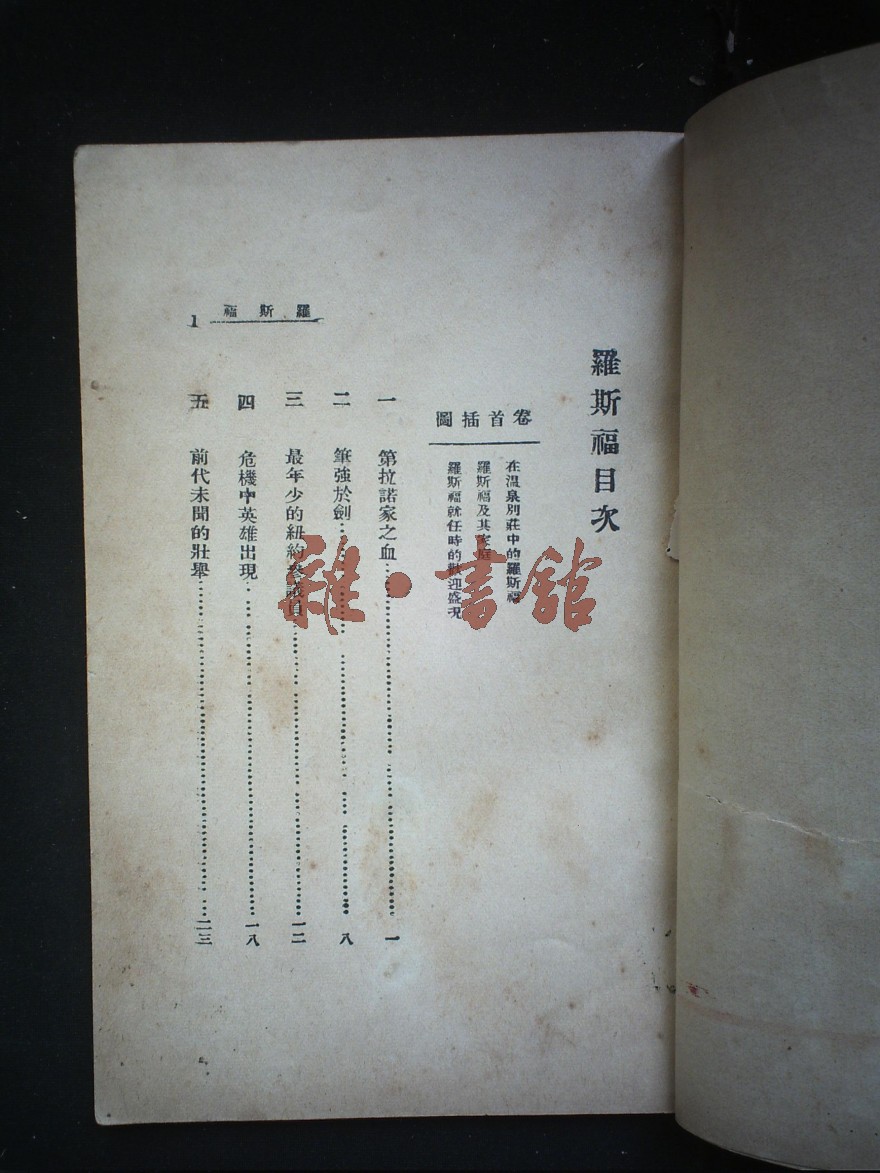 羅斯福目次
卷首插圖
在溫泉別莊中的羅斯福
羅斯福及其家庭
羅斯福就任時的歡迎盛况
一 第拉諾家之血 一
二 筆強於劍 八
三 最年少的紐約參議員 一二
四 危機中英雄出現 一八
五 前代未聞的壯舉 二三
羅斯福
1
雜·書館